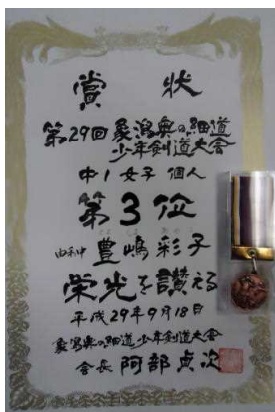 賞状
第29回 象潟奥の細道
少年剣道大会
中1女子 個人
第3位
由利中 豊嶋彩子
栄光を讃える
平成29年9月18日
象潟奥の細道少年剣道大会
会長 阿部貞次